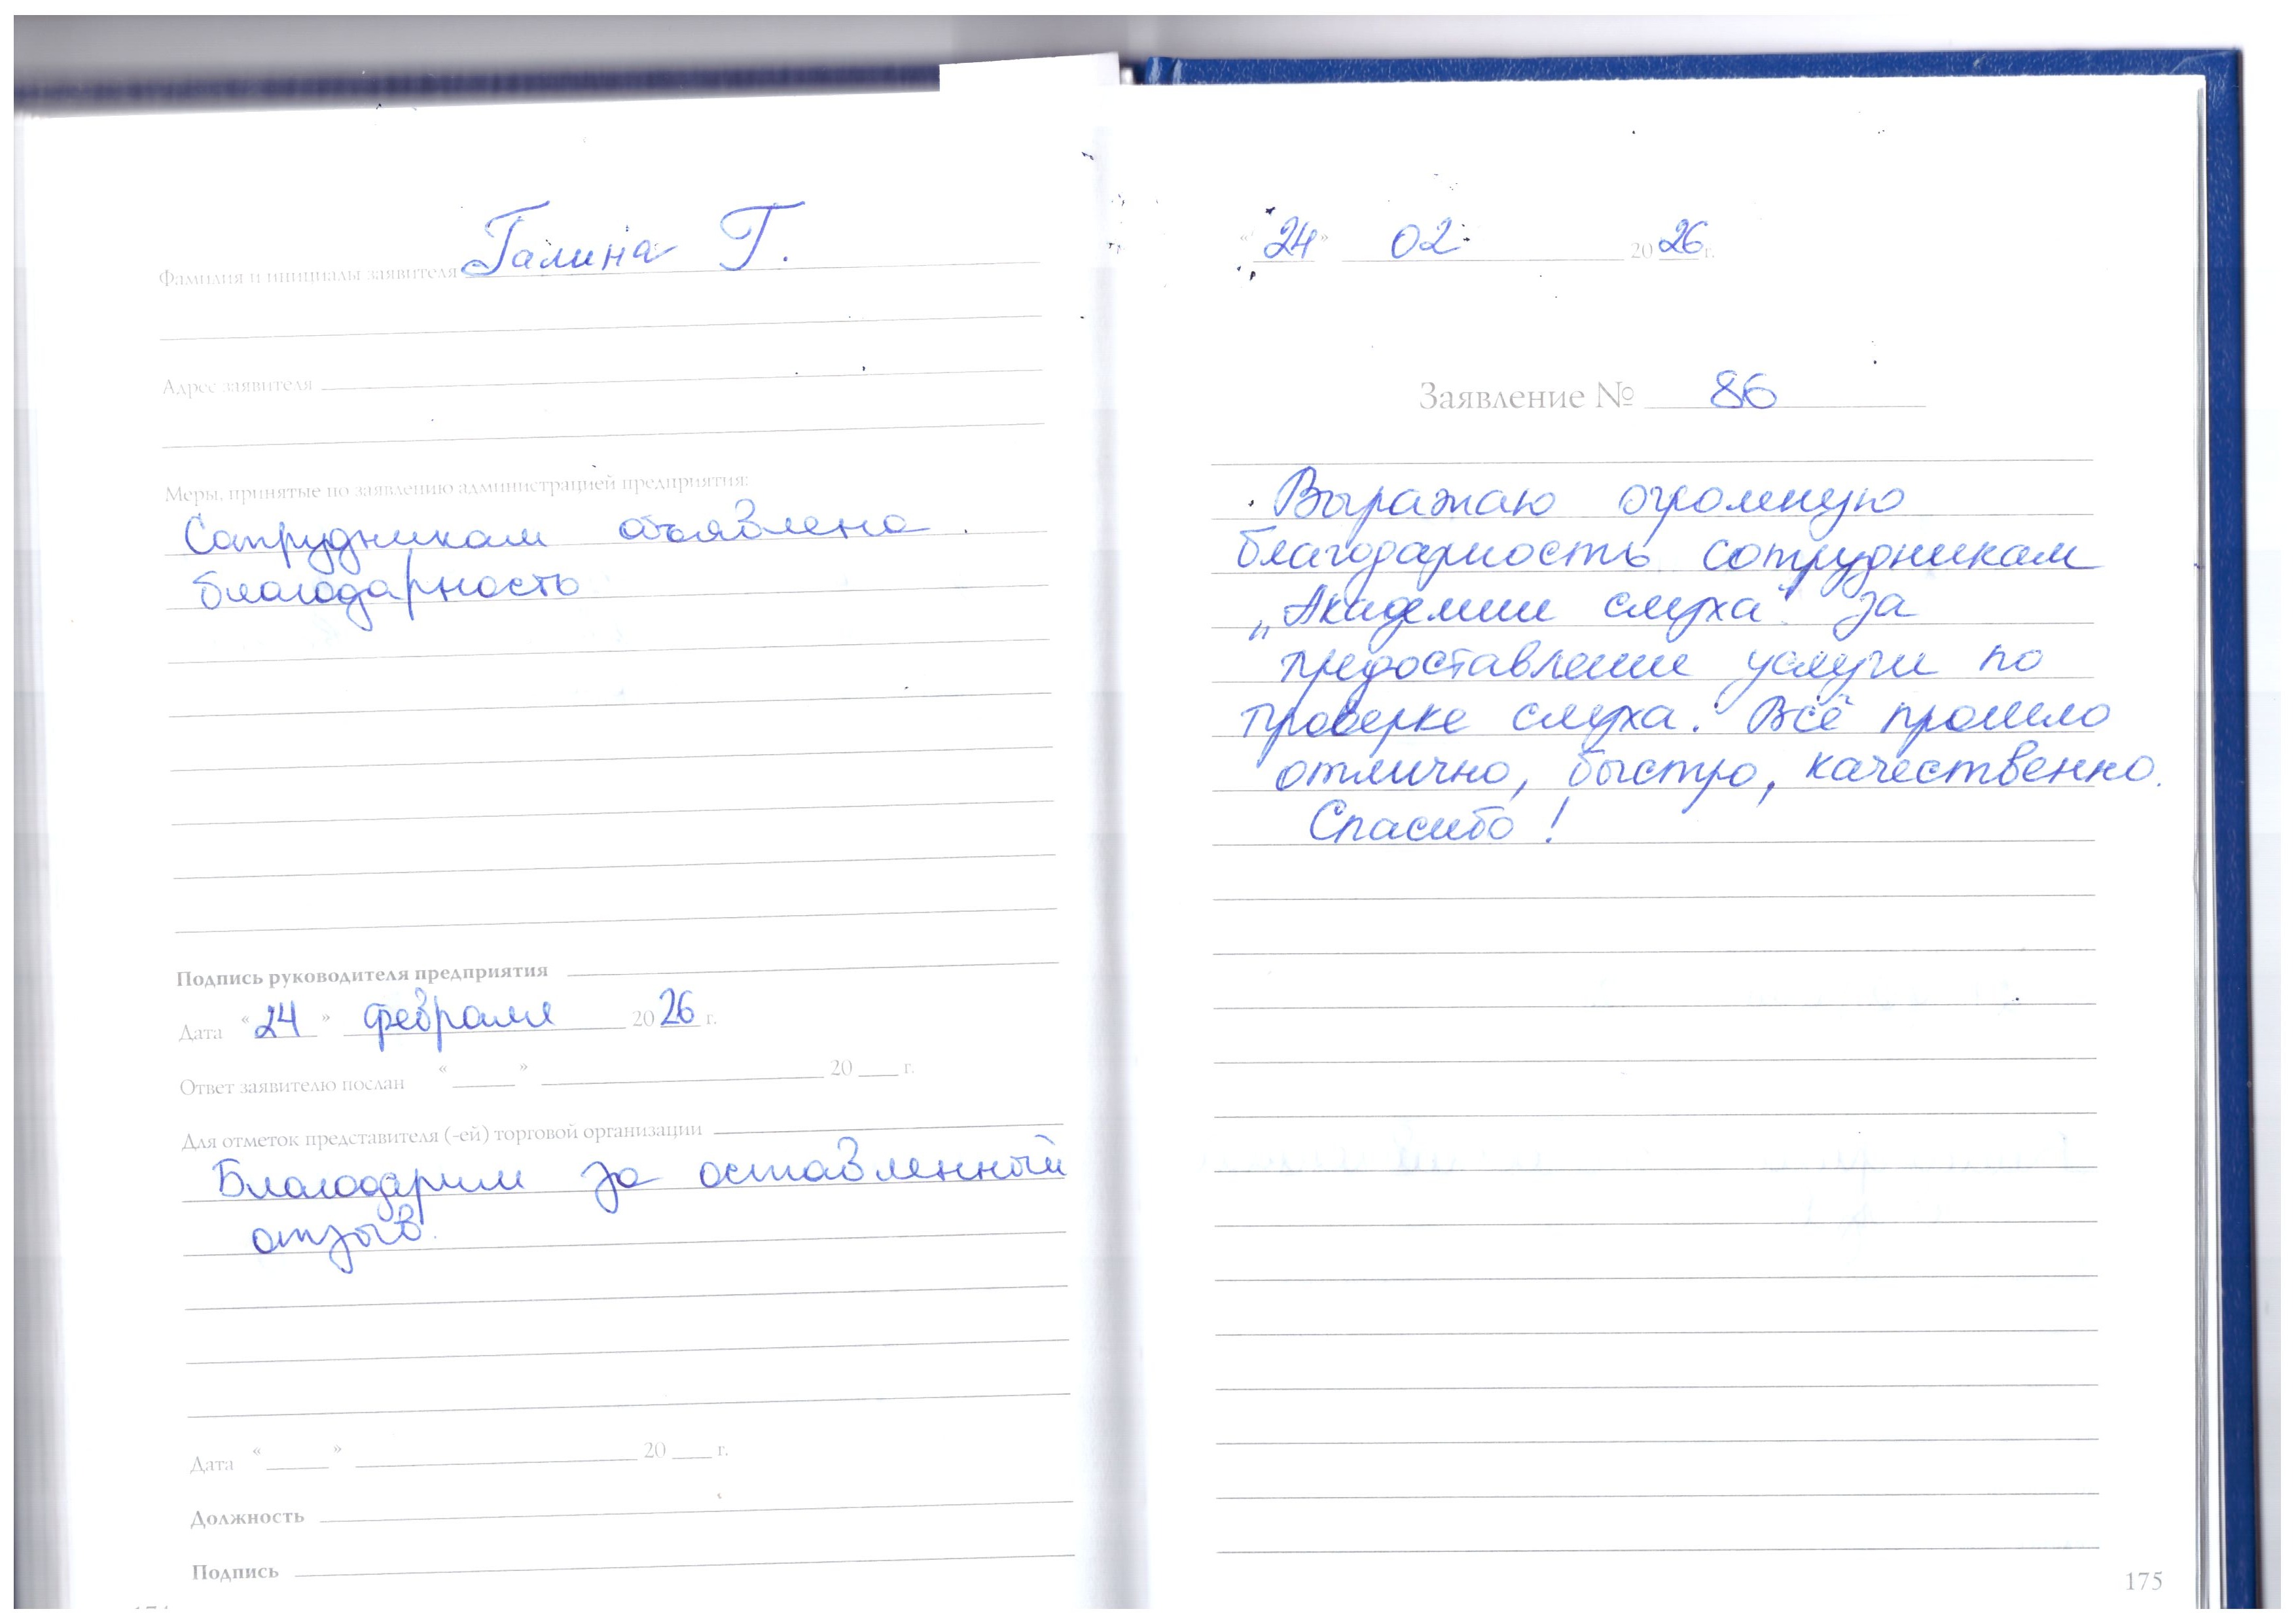 Фамилия и инициалы заявителя Галина Г.
Адрес заявителя
Меры, принятые по заявлению администрацией предприятия:
Сотрудникам объявлена
благодарность
Подпись руководителя предприятия
Дата «24» февраля 2026 г.
Ответ заявителю послан «____» ____ 20 ___ г.
Для отметок представителя (-ей) торговой организации
Благодарим за оставленный
отзыв.
Дата «____» ____ 20 ___ г.
Должность
Подпись
«24» 02 2026 г.
Заявление № 86
Выражаю огромную
благодарность сотрудникам
„Академии слуха" за
предоставление услуги по
проверке слуха. Всё прошло
отлично, быстро, качественно.
Спасибо!
175